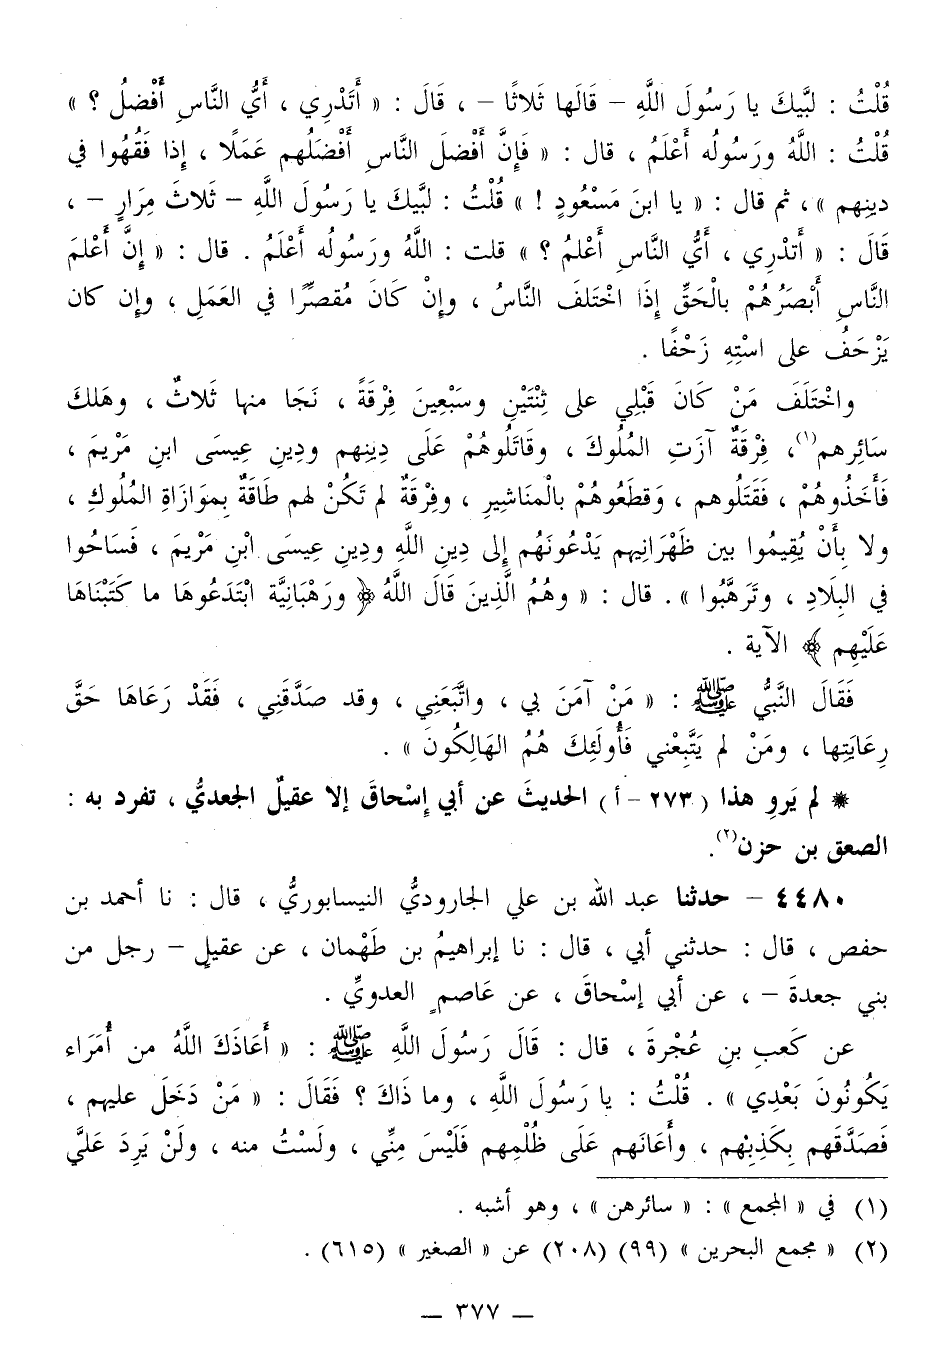 قُلْتُ : لبَّيكَ يا رَسُولَ اللَّهِ – قَالَها ثَلاثًا – ، قَالَ : « أَتَدْرِي ، أَيُّ النَّاسِ أَفْضلُ ؟ »
قُلْتُ : اللَّهُ ورَسُولُه أَعْلَمُ ، قال : « فَإِنَّ أَفْضلَ النَّاسِ أَفْضَلُهم عَمَلًا ، إِذا فَقُهُوا في
دينِهم » ، ثم قال : « يا ابنَ مَسْعُودٍ ! » قُلْتُ : لبَّيكَ يا رَسُولَ اللَّهِ – ثَلاثَ مِرَارٍ – ،
قَالَ : « أَتدْرِي ، أَيُّ النَّاسِ أَعْلمُ ؟ » قلت : اللَّهُ ورَسُولُه أَعْلَمُ . قال : « إِنَّ أَعْلمَ
النَّاسِ أَبْصَرُهُمْ بالْحَقِّ إِذَا اخْتَلفَ النَّاسُ ، وإِنْ كَانَ مُقصِّرًا في العَمَلِ ، وإِن كان
يَزْحَفُ على اسْتِهِ زَحْفًا .
واخْتَلَفَ مَنْ كَانَ قَبْلِي على ثِنْتَيْنِ وسَبْعِينَ فِرْقَةً ، نَجَا منها ثَلاثٌ ، وهَلكَ
سَائِرهم(١)، فِرْقَةٌ آزَتِ المُلوكَ ، وقَاتَلُوهُمْ عَلَى دِينِهم ودِينِ عِيسَى ابنِ مَرْيمَ ،
فَأَخَذُوهُمْ ، فَقَتَلُوهم ، وَقطَعُوهُمْ بالْمَنَاشِيرِ ، وفِرْقَةٌ لم تَكُنْ لهم طَاقَةٌ بِموَازَاةِ المُلوكِ ،
ولا بِأَنْ يُقِيمُوا بين ظَهْرَانِيهم يَدْعُونَهُم إِلى دِينِ اللَّهِ ودِينِ عِيسَى ابْنِ مَرْيمَ ، فَسَاحُوا
في البِلَادِ ، وتَرَهَّبُوا » . قال : « وهُمُ الَّذِينَ قَالَ اللَّهُ ﴿ ورَهْبَانِيَّة ابْتَدَعُوهَا ما كَتَبْنَاهَا
عَلَيْهِم ﴾ الآية .
فَقَالَ النَّبيُّ ﷺ : « مَنْ آمَنَ بي ، واتَّبَعَنِي ، وقد صَدَّقَنِي ، فَقَدْ رَعَاهَا حَقَّ
رِعَايَتِها ، ومَنْ لم يَتَّبِعْني فَأُولَئِكَ هُمُ الهَالِكُونَ » .
* لم يَروِ هذا ( ٢٧٣ – أ ) الحديثَ عن أبي إِسْحاقَ إلا عقيلٌ الجعديُّ ، تفرد به :
الصعق بن حزن(٢).
٤٤٨٠ – حدثنا عبد الله بن علي الجاروديُّ النيسابوريُّ ، قال : نا أحمد بن
حفص ، قال : حدثني أبي ، قال : نا إبراهيمُ بن طَهْمان ، عن عقيلٍ – رجل من
بني جعدةَ – ، عن أبي إِسْحاقَ ، عن عَاصمٍ العدويِّ .
عن كَعبِ بنِ عُجْرةَ ، قال : قَالَ رَسُولُ اللَّهِ ﷺ : « أَعَاذَكَ اللَّهُ من أُمَرَاء
يَكُونُونَ بَعْدِي » . قُلْتُ : يا رَسُولَ اللَّهِ ، وما ذَاكَ ؟ فَقَالَ : « مَنْ دَخَلَ عليهم ،
فَصَدَّقَهم بِكَذِبِهْم ، وأَعَانَهم عَلَى ظُلْمِهم فَلَيْسَ مِنِّي ، ولَسْتُ منه ، ولَنْ يَرِدَ عَليَّ
(١) في « المجمع » : « سائرهن » ، وهو أشبه .
(٢) « مجمع البحرين » (٩٩) (٢٠٨) عن « الصغير » (٦١٥) .
– ٣٧٧ –